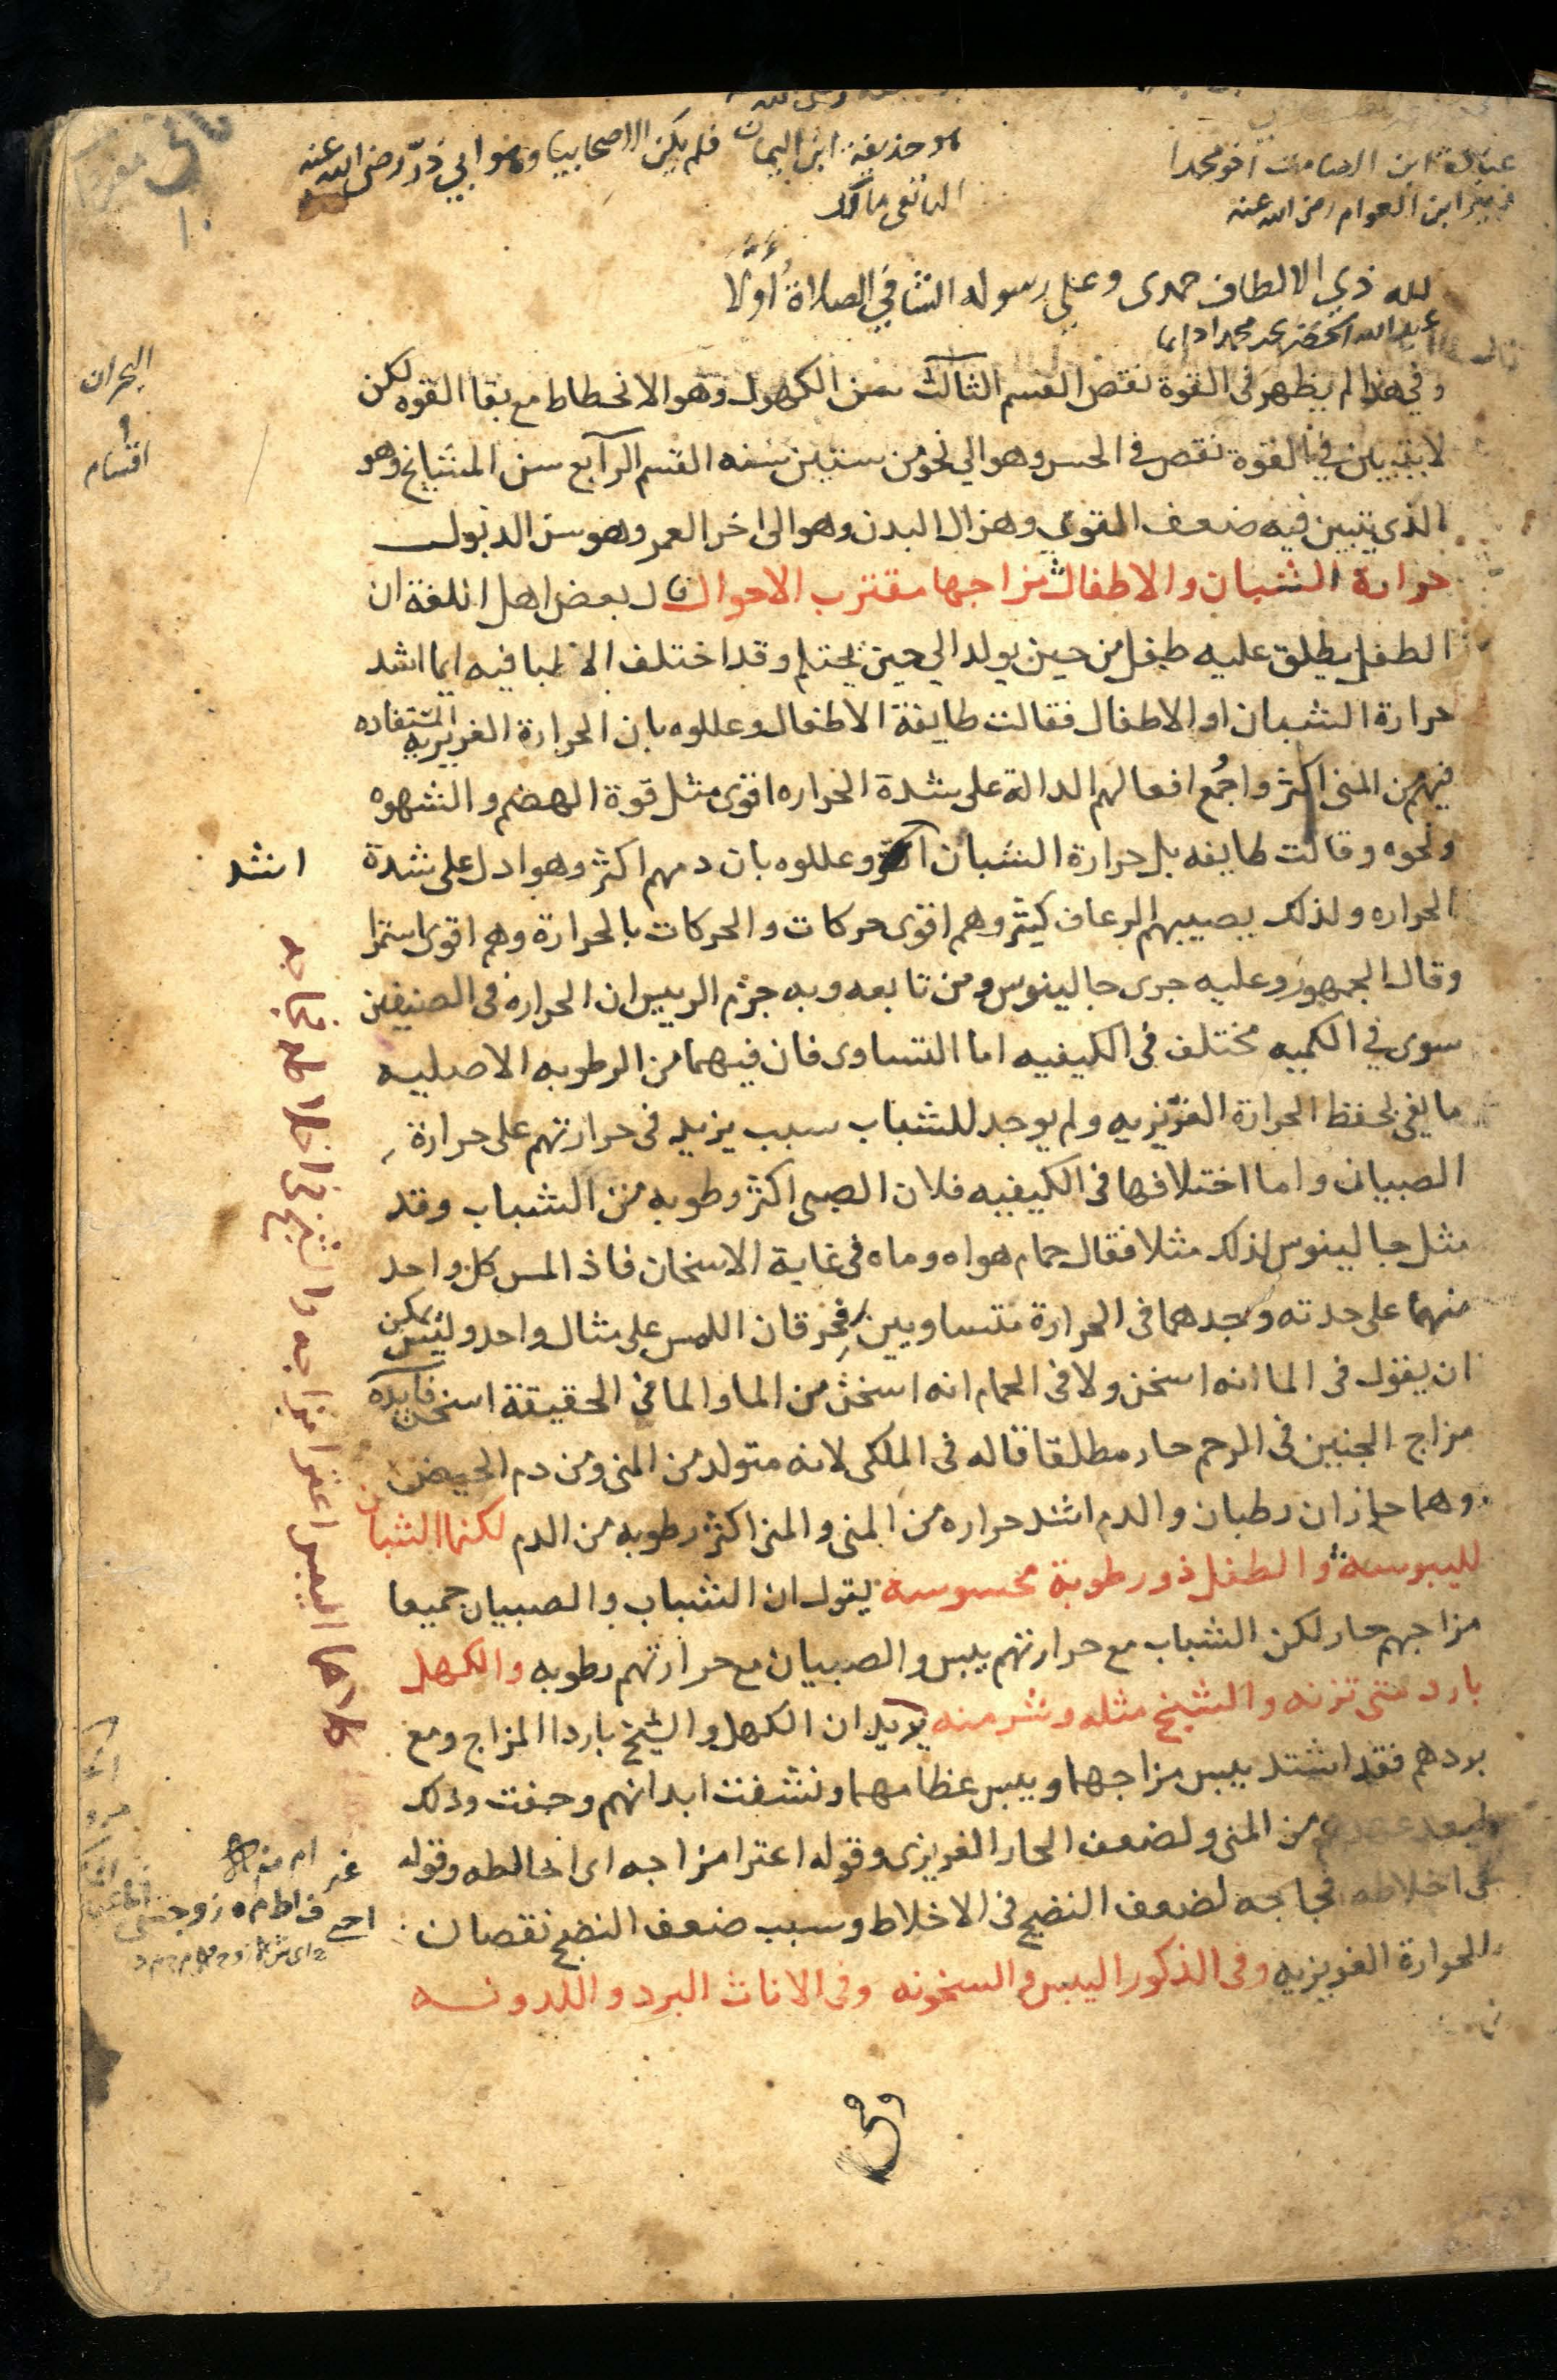 هو حذيفة ابن اليمان فلم يكن الا صحابيا وهو ابي ذرّ رضي الله عنه
عبادة ابن الصامت اخو محمدا
زبير ابن العوام رضي الله عنه
لله ذي الالطاف حمدى وعلى رسوله الشافي الصلاة أوّلا
وفي هذا لم يظهر فى القوة نقص القسم الثالث سن الكهول وهو الانحطاط مع بقا القوه لكن
لا يتبين في القوة نقص فى الحس وهو الي نحو من ستين سنه القسم الرابع سن المشايخ وهو
الذى يتبين فيه ضعف القوي وهزال البدن وهو الى اخر العمر وهو سن الدبول
حرارة الشبان والاطفال مزاجها مقترب الاحوال قال بعض اهل اللغة ان
الطفل يطلق عليه طفل من حين يولد الي حين يحتلم وقد اختلف الاطبا فيه ايما اشد
حرارة الشبان او الاطفال فقالت طايفة الاطفال وعللوه بان الحرارة الغريزيه المستفاده
فيهم من المنى اكثر واجمع افعالهم الدالة على شدة الحراره اقوى مثل قوة الهضم والشهوه
ونحوه وقالت طايفه بل حرارة الشبان اكثر وعللوه بان دمهم اكثر وهو ادل على شدة
اشد
الحراره ولذلك يصيبهم الرعاف كثير وهم اقوى حركات والحركات بالحرارة وهم اقوى استمرا
وقال الجمهور وعليه جرى جالينوس ومن تابعه وبه جزم الرييس ان الحراره فى الصنيفين
سوى في الكميه مختلف فى الكيفيه اما التساوى فان فيهما من الرطوبه الاصليه
ما يفى بحفظ الحرارة الغريزيه ولم يوجد للشباب سبب يزيد فى حرارتهم على حرارة
الصبيان واما اختلافها فى الكيفيه فلان الصبى اكثر رطوبه من الشباب وقد
مثل جالينوس لذلك مثلا فقال حمام هواه وماه فى غاية الاسخان فاذا لمس كل واحد
منهما على حدته وجدهما فى الحرارة متساويين فحرقان اللمس على مثال واحد وليس يمكن
ان يقول فى الما انه اسخن ولا فى الحمام انه اسخن من الما والما فى الحقيقة اسخن فايده
مزاج الجنين فى الرحم حار مطلقا قاله فى الملكى لانه متولد من المنى ومن دم الحيض
وهما حاران رطبان والدم اشد حراره من المنى والمنى اكثر رطوبه من الدم لكنما الشبان
لليبوسة والطفل ذو رطوبة محسوسه يقول ان الشباب والصبيان جميعا
مزاجهم حار لكن الشباب مع حرارتهم يبس والصبيان مع حرارتهم رطوبه والكهل
بارد متى تزنه والشيخ مثله وشر منه يريد ان الكهل والشيخ باردا المزاج ومع
بردهم فقد اشتد يبس مزاجهما ويبس عظامهما ونشفت ابدانهم وجفت وذلك
لبعد عهدهم من المنى ولضعف الحار الغريزى وقوله اعترا مزاجه اى خالطه وقوله
فى اخلاطه فجاجه لضعف النضج فى الاخلاط وسبب ضعف النضج نقصان
الحرارة الغريزيه وفى الذكور اليبس والسخونه وفى الاناث البرد واللدونه
كلاهما اليبس اعترا مزاجه والشيخ فى اخلاطه فجاجه
البحران
اقسام